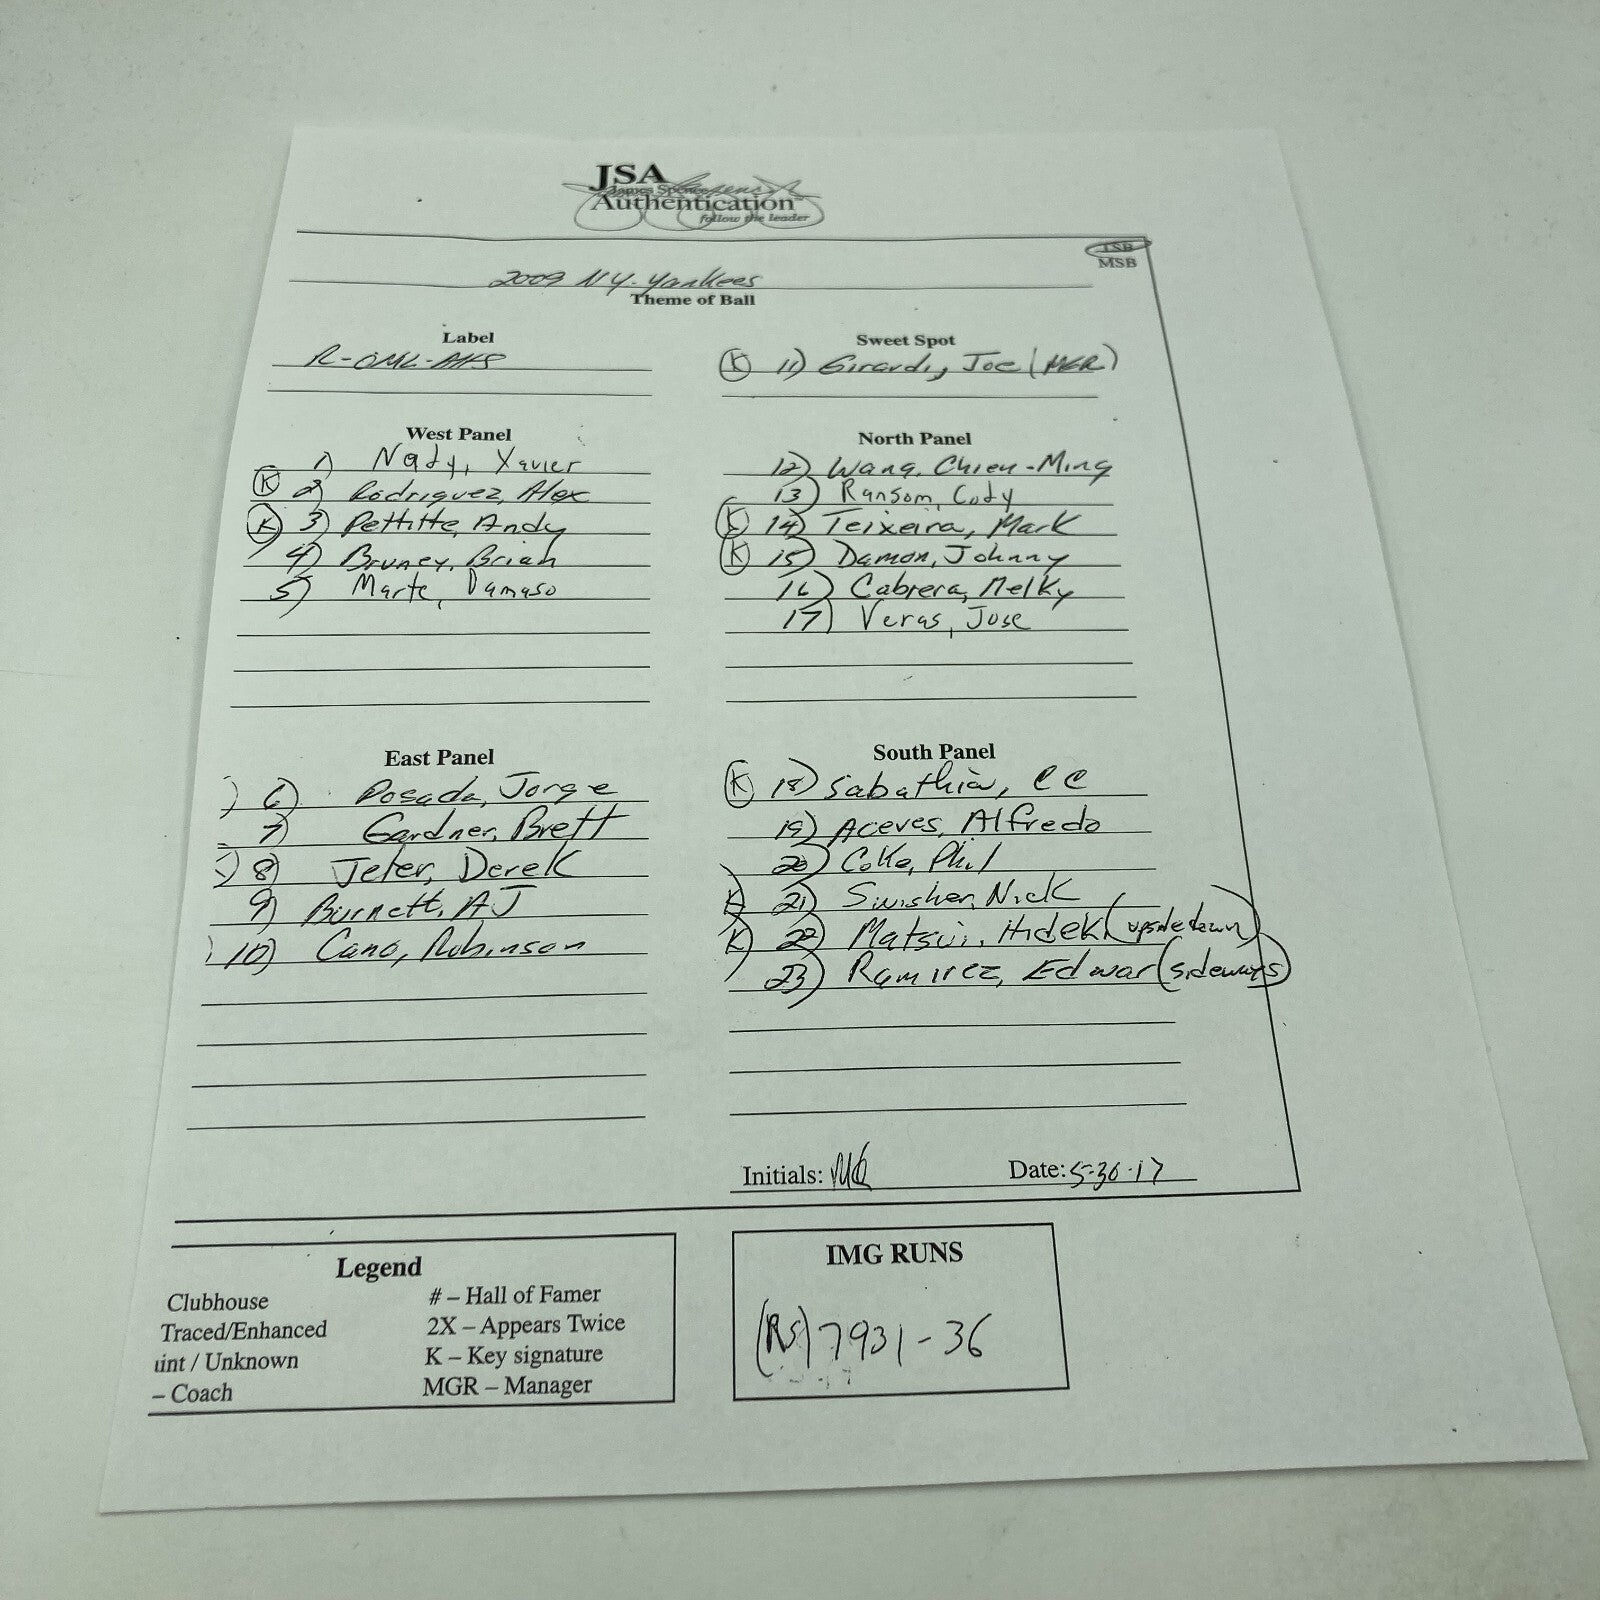 JSA
James Spence
Authentication
follow the leader
TSB
MSB
2009 N.Y. Yankees
Theme of Ball
Label
R-OML-AHS
Sweet Spot
K 11) Girardi, Joe (MGR)
West Panel
1) Nady, Xavier
K 2) Rodriguez, Alex
K 3) Pettitte, Andy
4) Bruney, Brian
5) Marte, Damaso
North Panel
12) Wang, Chien-Ming
13) Ransom, Cody
K 14) Teixeira, Mark
K 15) Damon, Johnny
16) Cabrera, Melky
17) Veras, Jose
East Panel
) 6) Posada, Jorge
7) Gardner, Brett
) 8) Jeter, Derek
9) Burnett, AJ
) 10) Cano, Robinson
South Panel
K 18) Sabathia, CC
19) Aceves, Alfredo
20) Coke, Phil
K 21) Swisher, Nick
K 22) Matsui, Hideki (upside down)
23) Ramirez, Edwar (sideways)
Initials: MQ
Date: 5-30-17
Legend
Clubhouse
Traced/Enhanced
int / Unknown
– Coach
# – Hall of Famer
2X – Appears Twice
K – Key signature
MGR – Manager
IMG RUNS
(RS) 7931-36